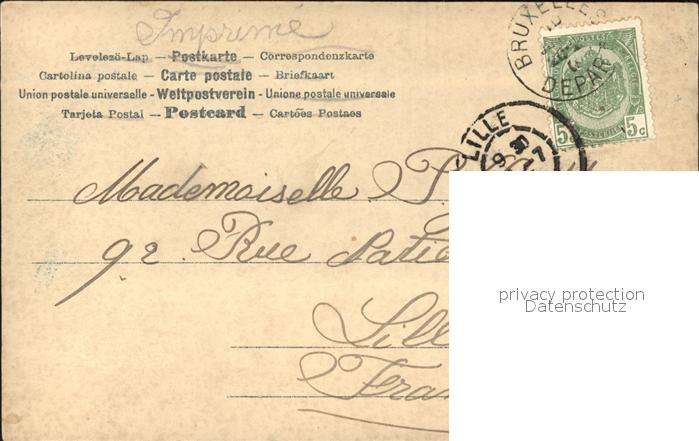 Imprimé
Levelezö-Lap — Postkarte — Correspondenzkarte
Cartolina postale — Carte postale — Briefkaart
Union postale universelle - Weltpostverein - Unione postale universale
Tarjeta Postal — Postcard — Cartões Postaes
BRUXELLES
DEPART
5 5c
LILLE
Mademoiselle P
92 Rue
Lill
Fran
privacy protection
Datenschutz